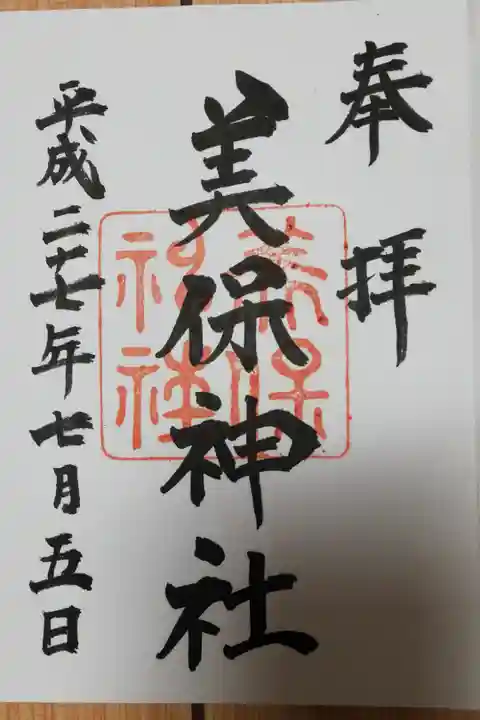 奉拝
美保神社
美保神社
平成二十七年七月五日